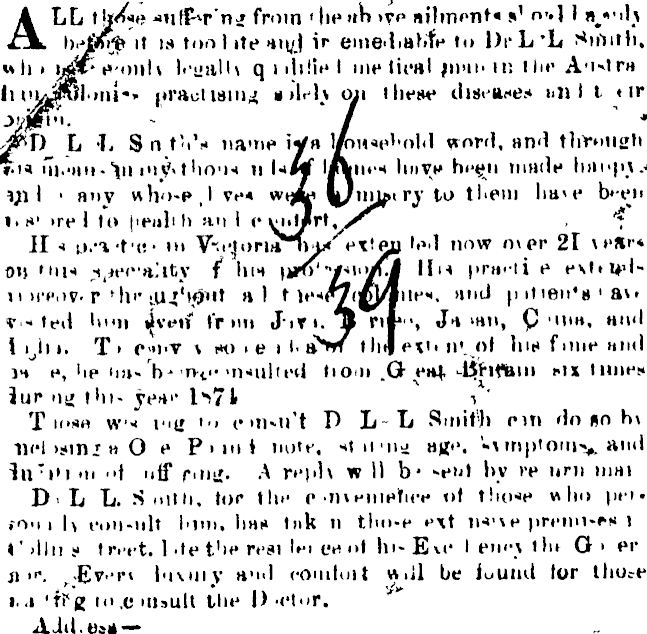 ALL those suffering from the above ailments should apply
before it is too late and irremediable to Dr L. L. Smith,
who is the only legally qualified medical man in the Austra
lian colonies practising solely on these diseases and their
origin.
Dr L. L. Smith's name is a household word, and through
his means many thousands of homes have been made happy,
and many whose lives were a misery to them have been
restored to health and comfort.
36
His practice in Victoria has extended now over 21 years
on this speciality of his profession. His practice extends
moreover throughout all these colonies, and patients have
visited him even from Java, Borneo, Japan, China, and
39
India. To convey some idea of the extent of his fame and
he has been consulted from Great Britain six times
during this year 1874
Those wishing to consult Dr L. L. Smith can do so by
inclosing a One Pound note, stating age, symptoms, and
duration of suffering. A reply will be sent by return mail
Dr L. L. Smith, for the convenience of those who per-
sonally consult him, has taken those extensive premises in
Collins street, late the residence of his Excellency the Gover
nor. Every luxury and comfort will be found for those
waiting to consult the Doctor.
Address—